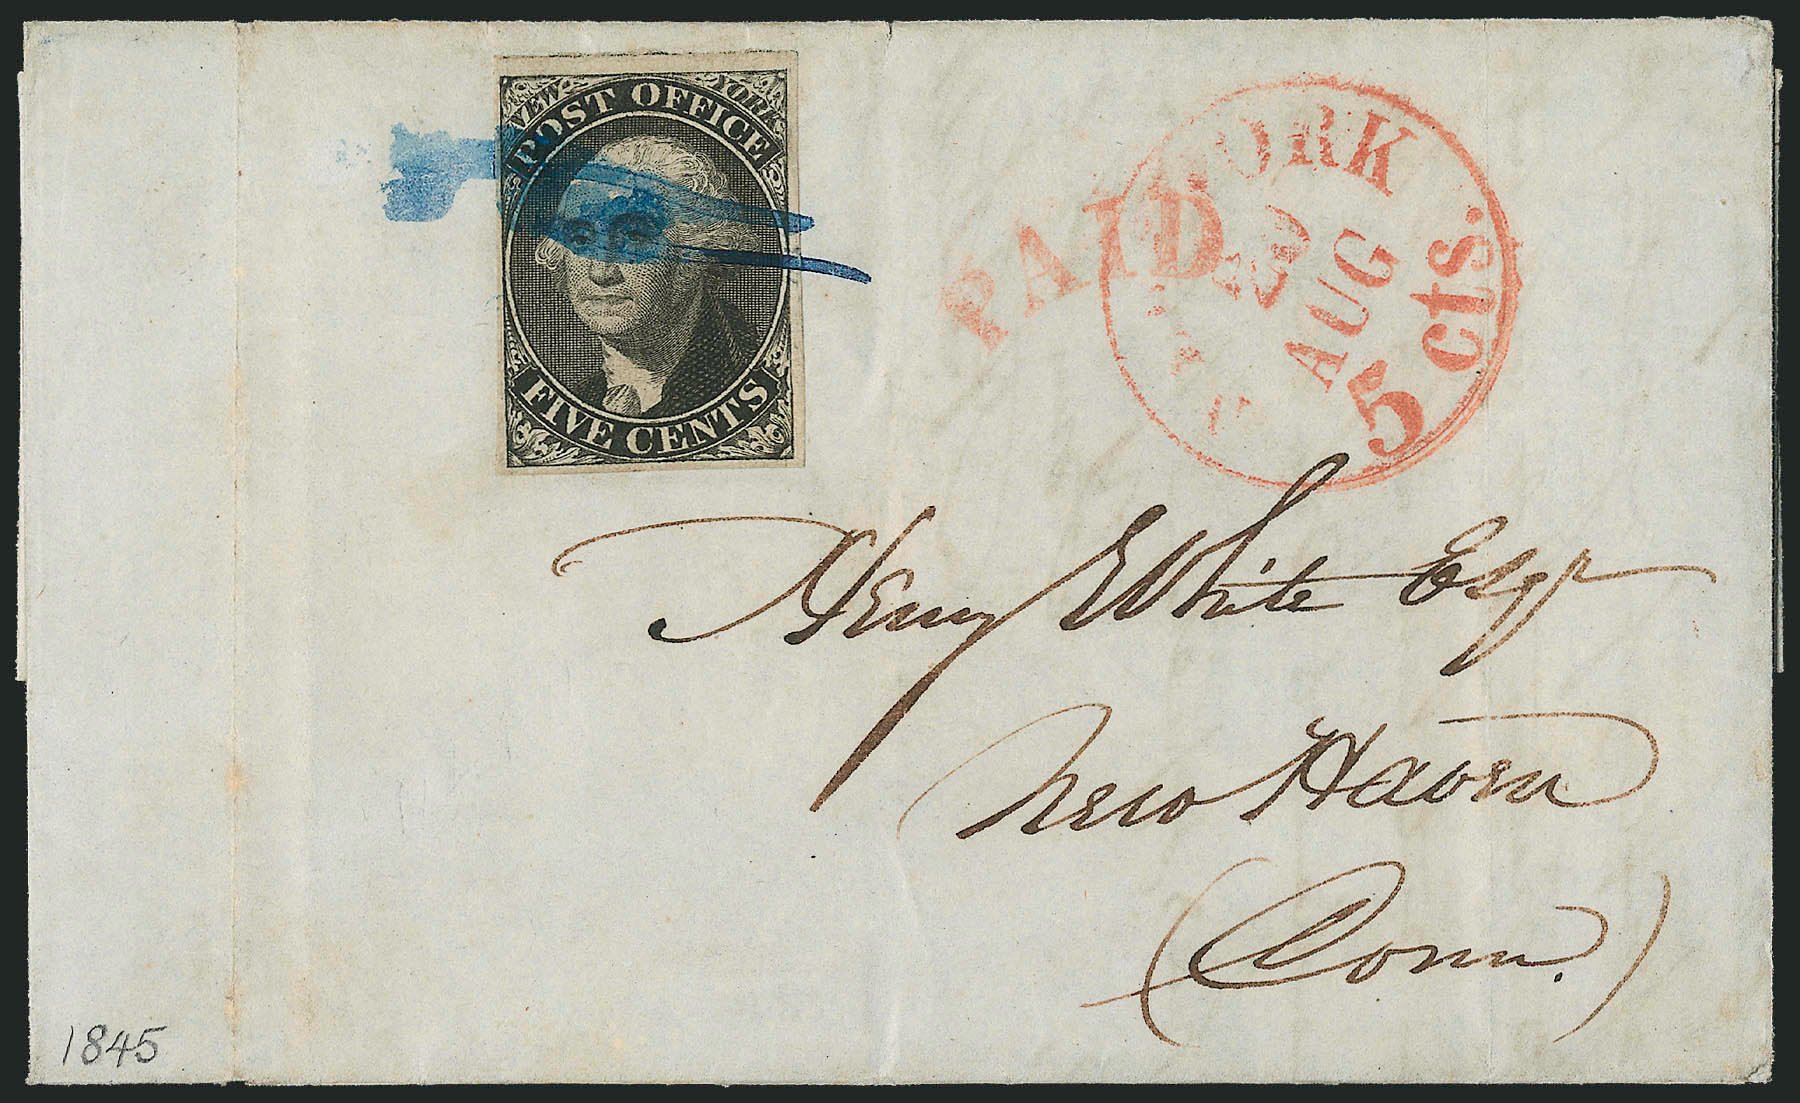 NEW YORK
POST OFFICE
FIVE CENTS
PAID
YORK
AUG
5 cts.
Henry White Esqr
New Haven
(Conn.)
1845